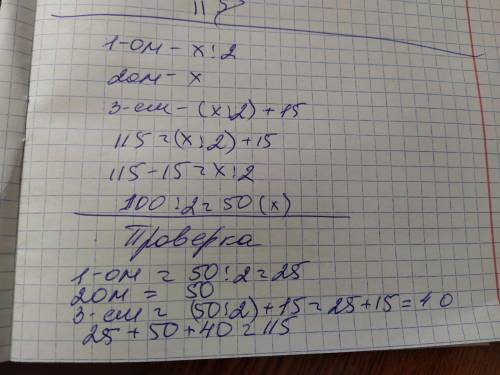 1-ом - х:2
2ом - х
3-ем - (х:2)+15
115=(х:2)+15
115-15=х:2
100:2=50(х)
Проверка
1-ом = 50:2=25
2ом = 50
3-ем = (50:2)+15=25+15=40
25+50+40=115